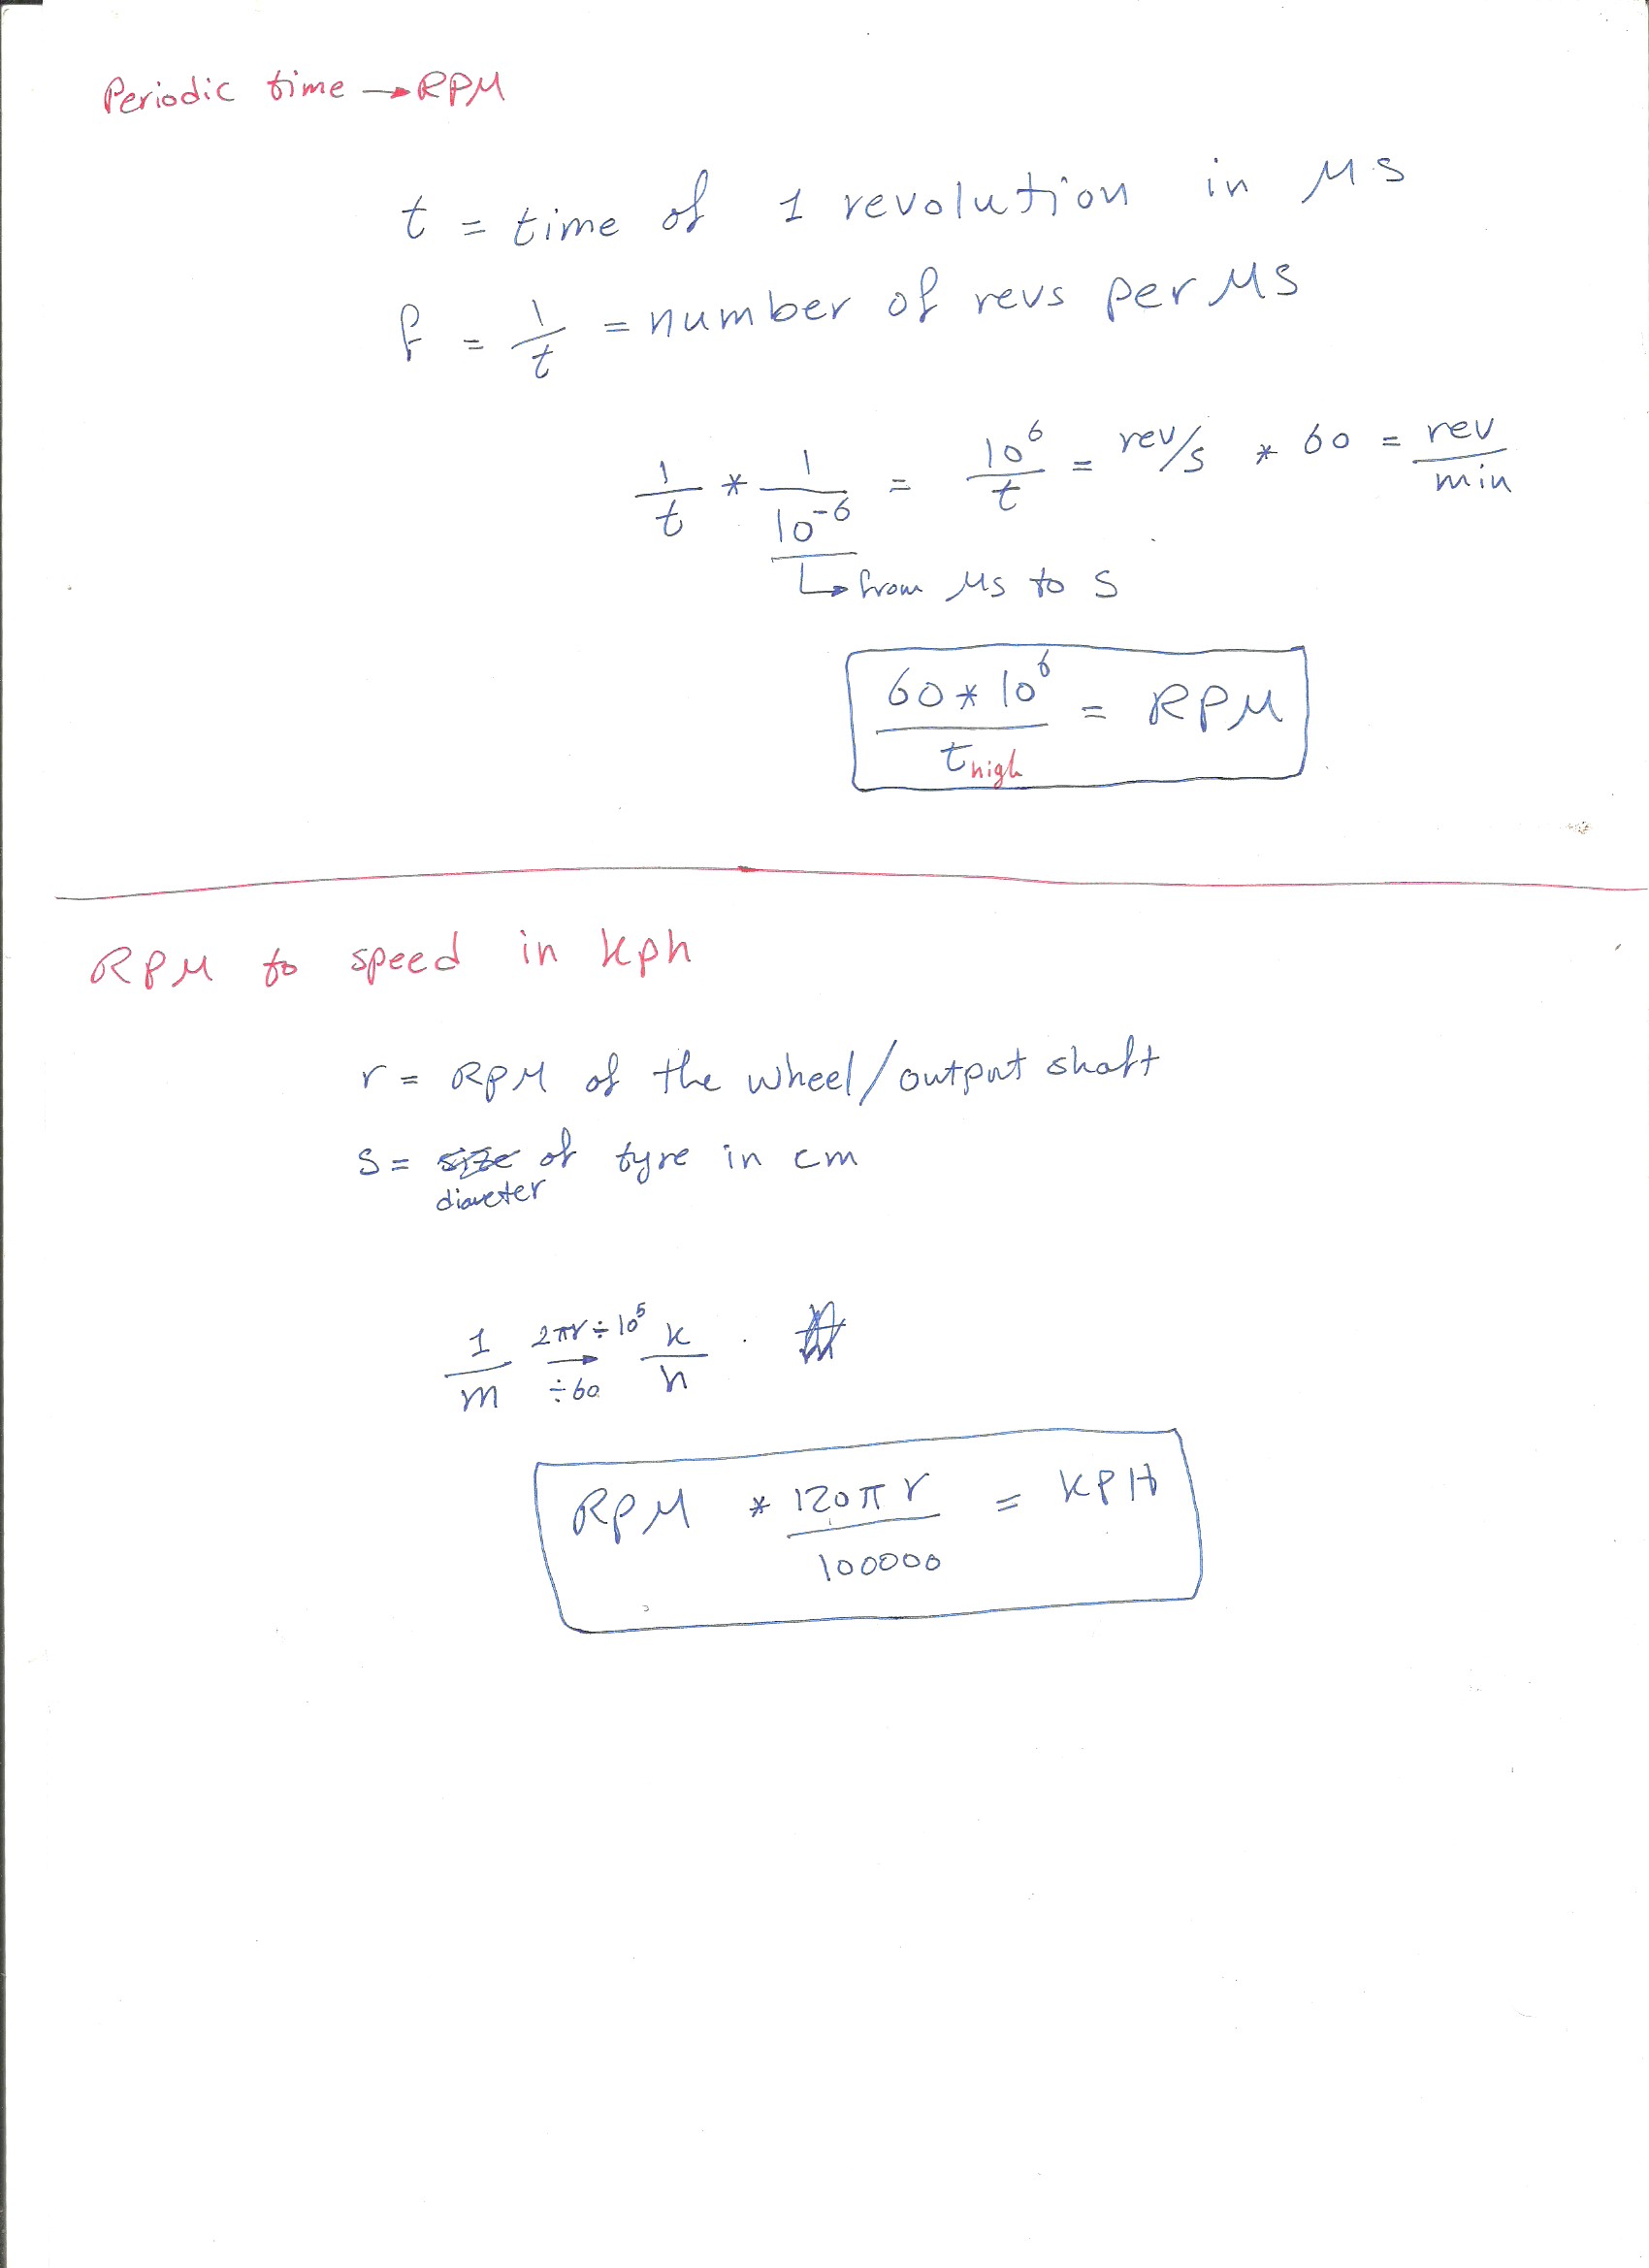 Periodic time → RPM
t = time of 1 revolution in μs
f = 1/t = number of revs per μs
1/t * 1/10⁻⁶ = 10⁶/t = rev/s * 60 = rev/min
↳ from μs to s
60 * 10⁶ / t high = RPM
RPM to speed in kph
r = RPM of the wheel/output shaft
s = size of tyre in cm
diameter
1/m 2πr ÷ 10⁵ → ÷ 60 k/h
RPM * 120πr / 100000 = KPH